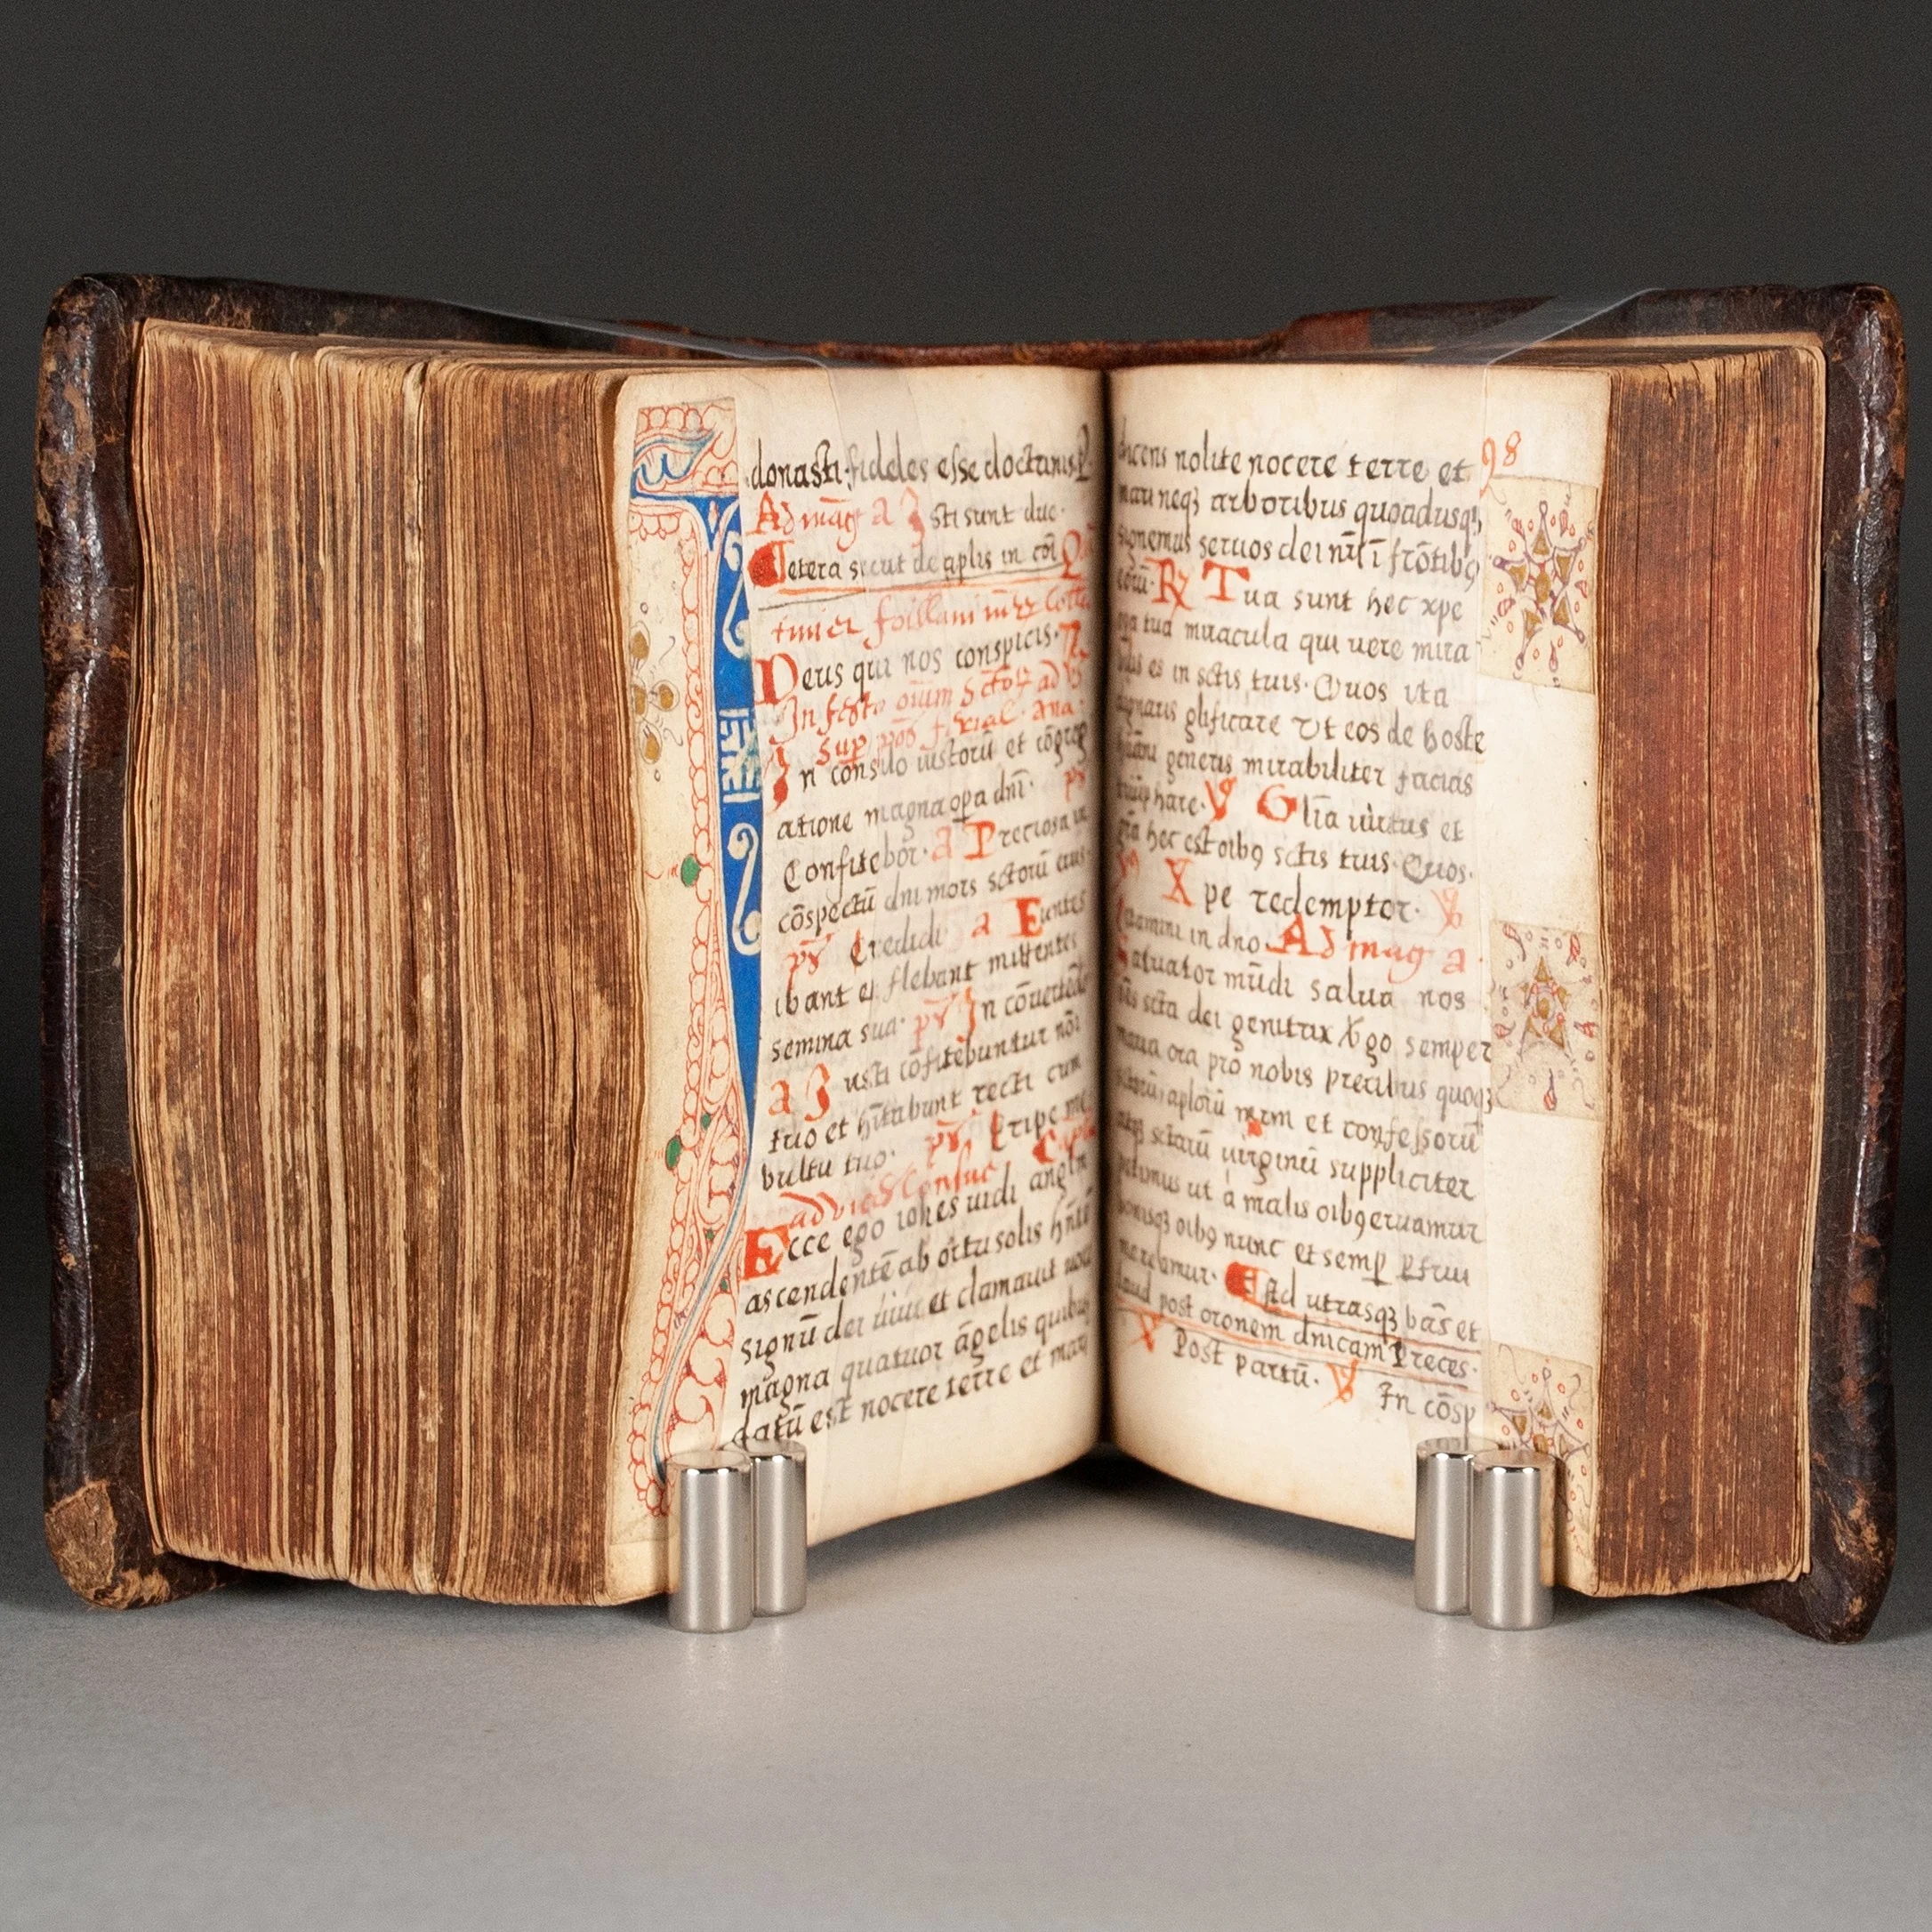 donasti fideles esse doctrinis.
Ad mag a Isti sunt due.
Cetera sicut de aplis in cōi
Deus qui nos conspicis.
In festo oīum sctoꝝ ad
sup
In consilio iustorū et cōgreg
atione magna opa dnī. ps
Confitebor. a Preciosa in
cōspectū dni mors sctorū eius
ps Credidi a Euntes
ibant et flebant mittentes
semina sua. ps In cōuertēdo
a Iusti cōfitebuntur nōi
tuo et hītabunt recti cum
vultu tuo. ps Eripe me
ad vies
Ecce ego iohes uidi anglm
ascendentē ab ortu solis hñtē
signū dei uiui et clamauit uoce
magna quatuor āgelis quibus
datū est nocere terre et mari
98
dicens nolite nocere terre et
mari neqꝫ arboribus quoadusqꝫ
signemus seruos dei nrī ī frōtibꝯ
eorū. ℟ Tua sunt hec xpe
tua miracula qui uere mira
es in sctis tuis. Quos ita
glificare Vt eos de hoste
generis mirabiliter facias
hare. ℣ Glīa uirtus et
hec est oibꝯ sctis tuis. Quos.
Xpe redemptor. ℣
in dno. Ad mag a
Saluator mūdi salua nos
scta dei genitrix Vgo semper
maria ora pro nobis precibus quoqꝫ
sctorū aplorū mrm et confessorū
atqꝫ sctarū uirginū suppliciter
petimus ut a malis oibꝯ eruamur
bonisqꝫ oibꝯ nunc et semp pfrui
mereamur. Ad utrasqꝫ
laud post oronem dnicam Preces.
℣ Post partū. ℣ In cōsp